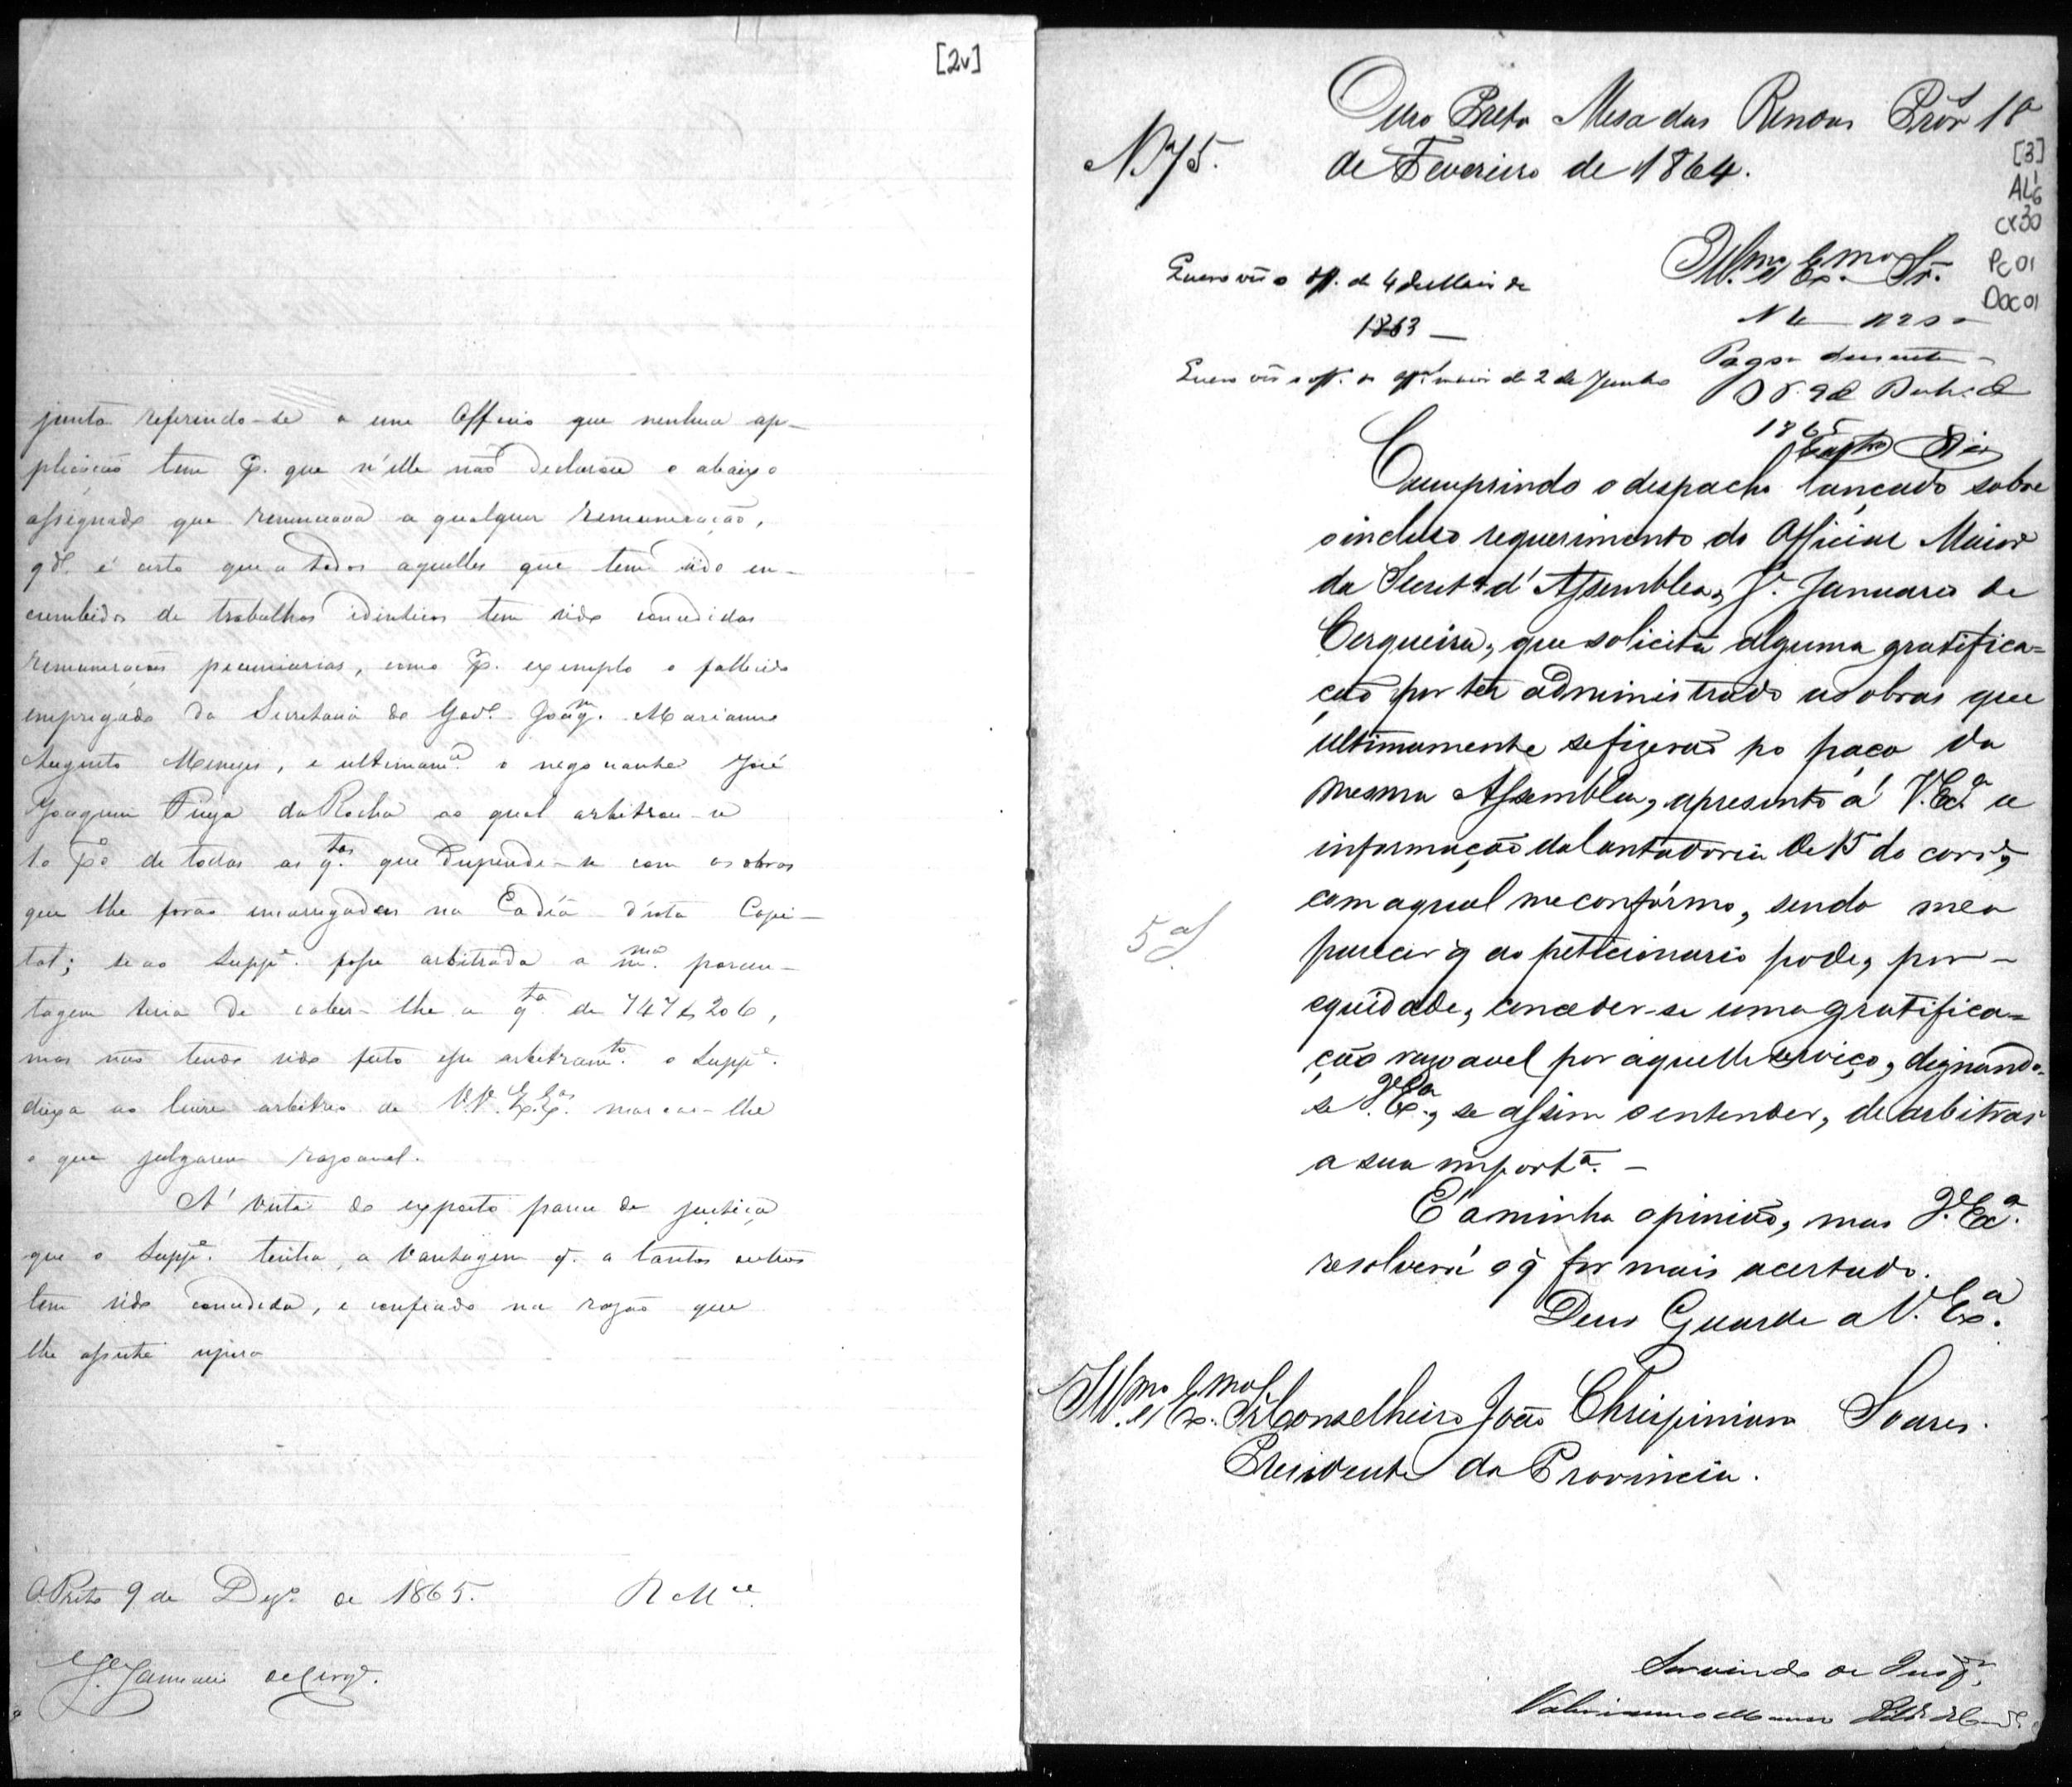 [2v]
junto referindo-se a um Officio que nenhua ap-
plicação tem p. que n'elle não declarou o abaixo
assignado que renunciava a qualquer remuneração,
qdo. é certo que a todos aquelles que tem sido en-
cumbidos de trabalhos identicos tem sido concedidas
remunerações pecuniarias, como p. exemplo o fallecido
empregado da Secretaria do Govo. Joaqm. Marianno
Augusto Menezes, e ultimame. o negociante José
Joaquim Puga da Rocha ao qual arbitrou-se
10 p% de todas as qtas. que dispendeu-se com as obras
que lhe forão encarregadas na Cadêa d'esta Capi-
tal; se ao Suppe. fosse arbitrada a mma. porcen-
tagem teria de caber-lhe a qta. de 747$206,
mas não tendo sido feito esse arbitramto. o Suppe.
deixa ao livre arbitrio de V.V. Ex.Exas. marcar-lhe
o que julgarem rasoavel.
A' vista do exposto parece de justiça
que o Suppe. tenha a vantagem q. a tantos outros
tem sido concedida, e confiado na razão que
lhe assiste espera
O. Preto 9 de Dezo. de 1865. R Mce.
Je. Januario de Cerqa.
Ouro Preto Mesa das Rendas Proves 18
No 75. de Fevereiro de 1864.
[3]
AL16
cx30
Pc 01
Doc 01
Illmo. e Exmo. Sr.
off. de 4 de Maio de
1863 —
maior de 2 de Junho
1865
Cumprindo o despacho lançado sobre
o incluso requerimento do Official Maior
da Secreta. d'Assemblea, Je. Januario de
Cerqueira, que solicita alguma gratifica=
ção por ter administrado as obras que
ultimamente se fizerão no paço da
mesma Assemblea, apresento á V. Exa. a
informação da Contadoria de 15 do corre.,
com a qual me confórmo, sendo meu
parecer q ao peticionario pode, por-
equidade, conceder-se uma gratifica=
ção rasoavel por aquelle serviço, dignando-
se V. Exa., se assim o entender, de arbitrar
a sua importa. —
E' a minha opinião, mas V. Exa.
resolverá o q̃ for mais acertado.
Deus Guarde a V. Exa.
Illmo. e Exmo. Sr. Conselheiro João Chrispiniano Soares.
Presidente da Provincia.
Servindo de Inspor.